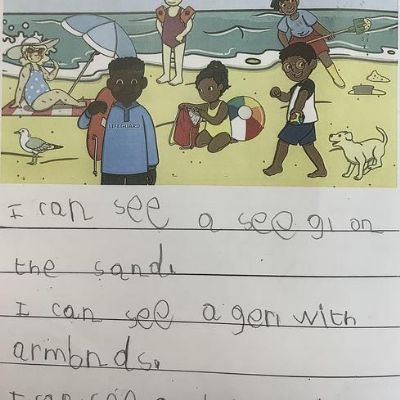 LIFEGUARD
I can see a see gl on
the sand.
I can see a gerl with
armbnds.
I can see a